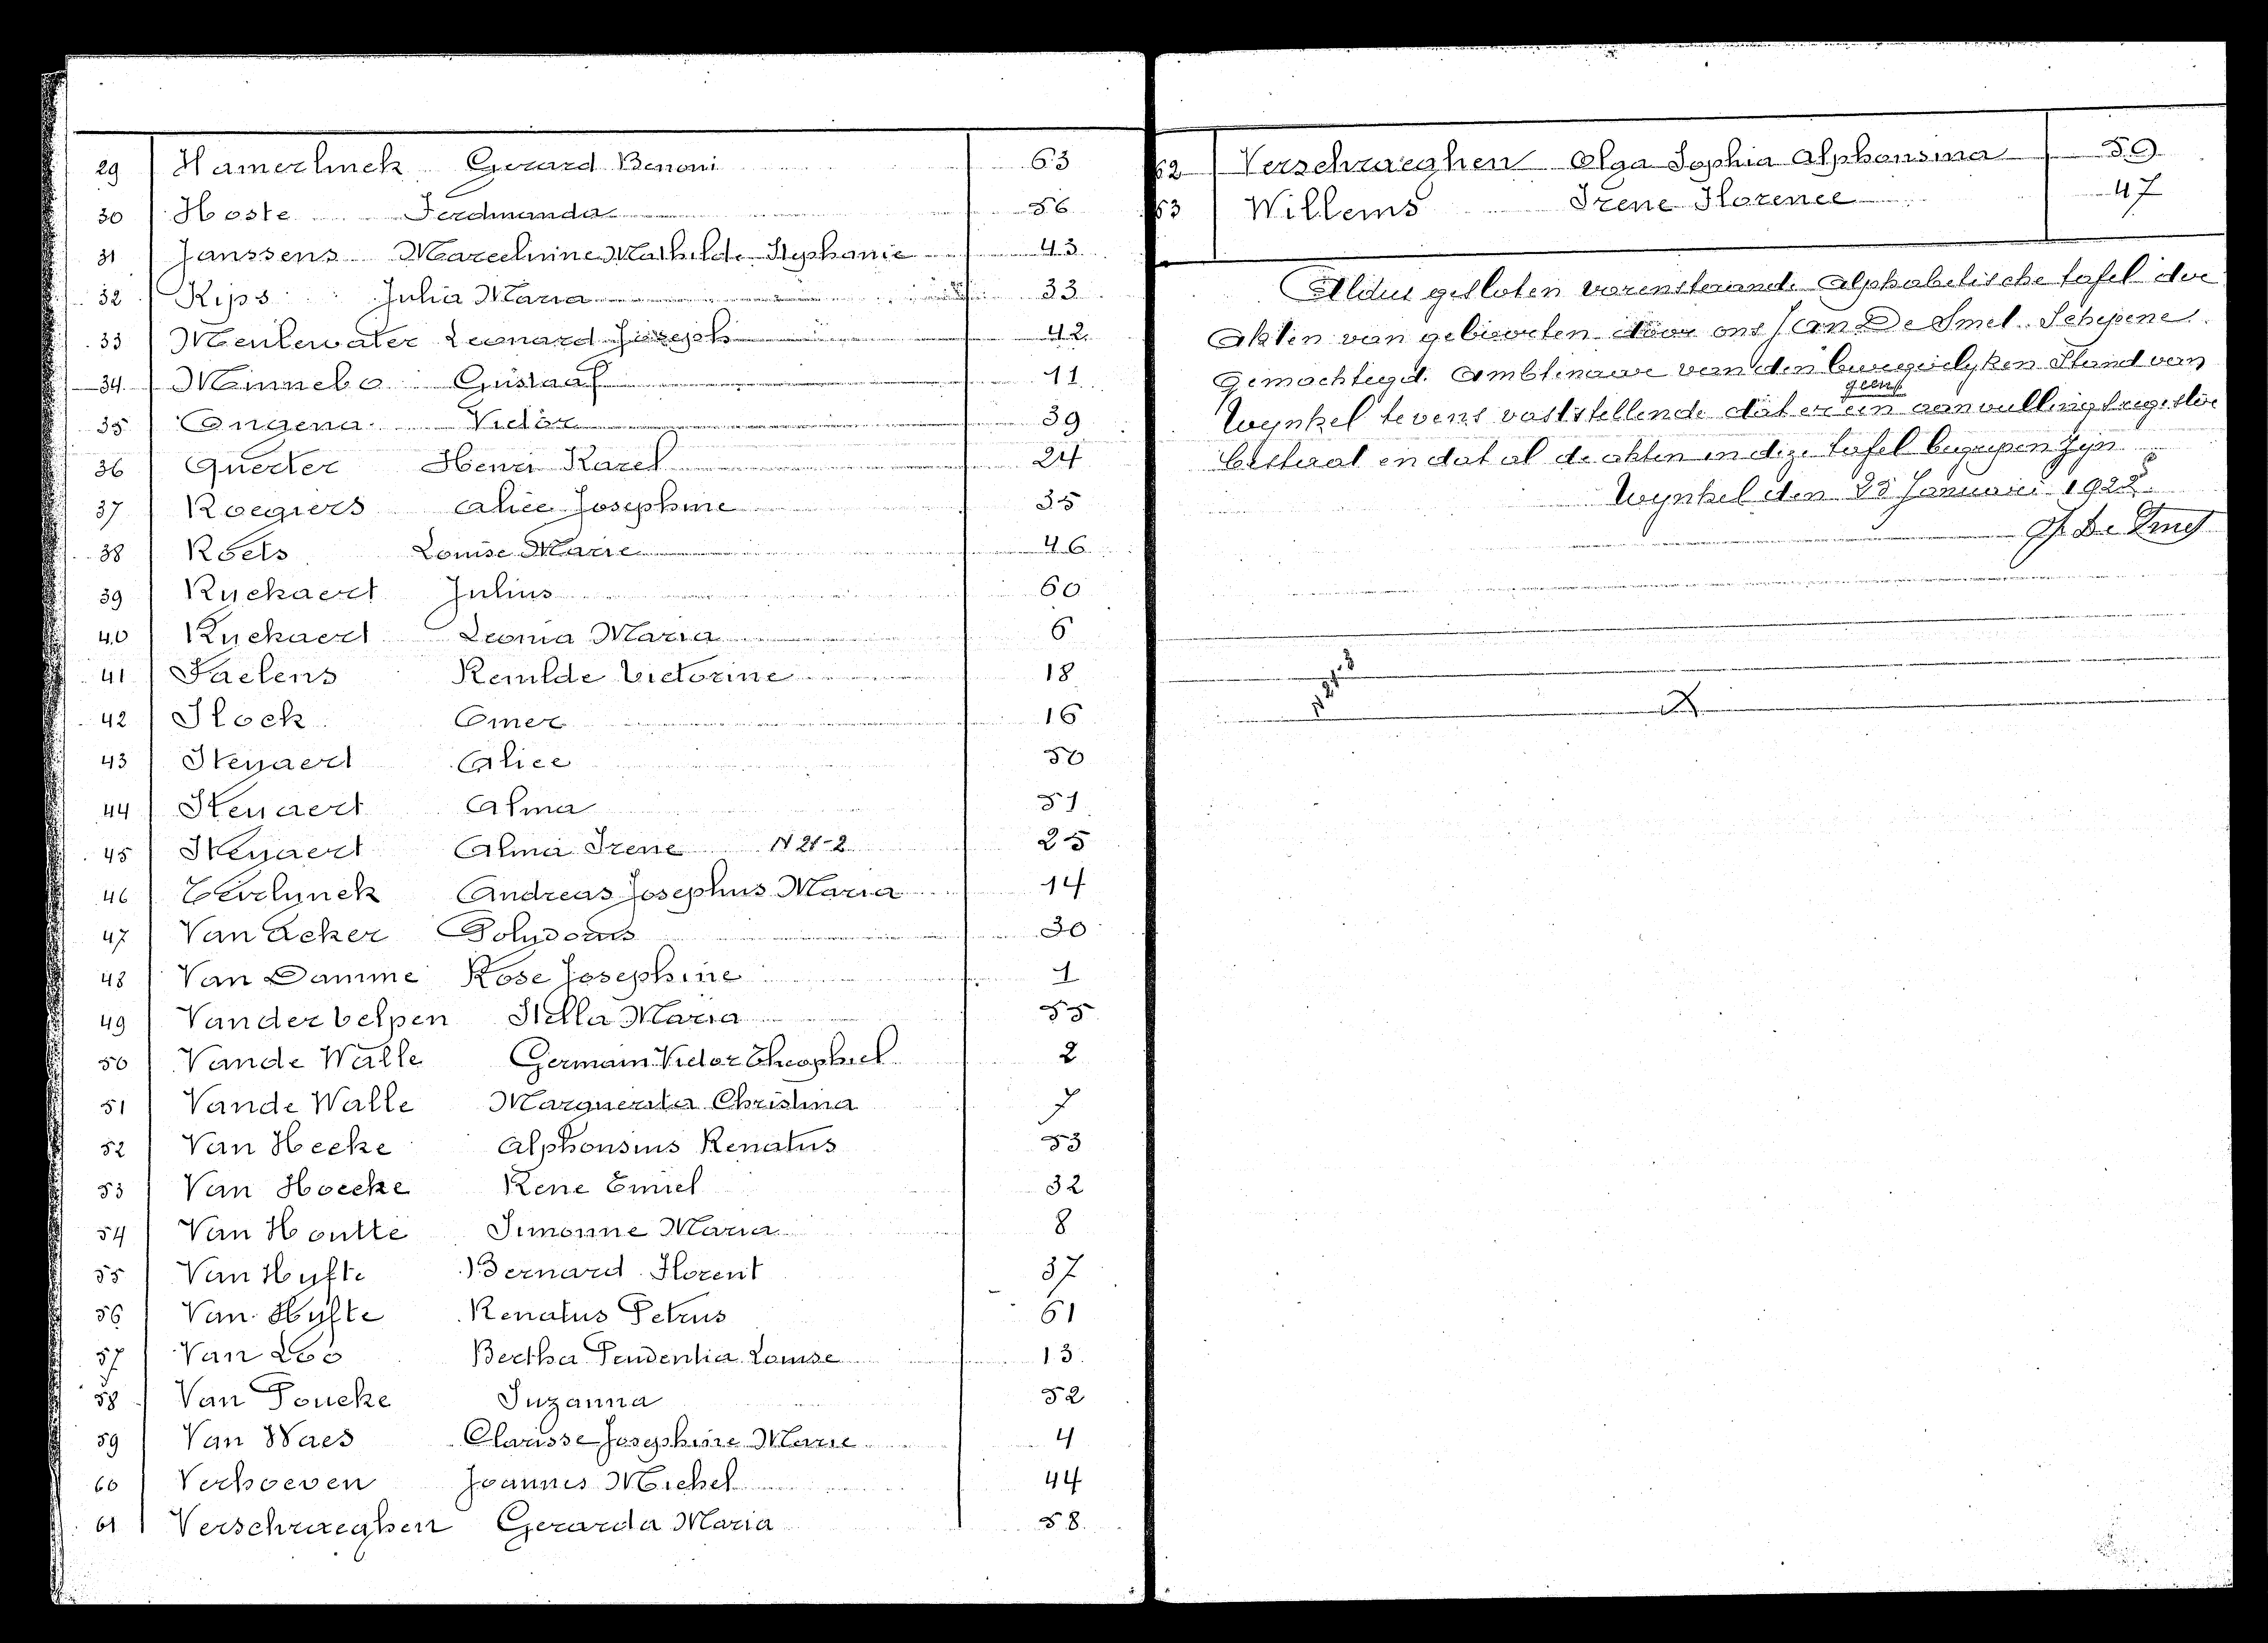 29 Hamerlinck Gerard Benoni 63
30 Hoste Ferdinanda 56
31 Janssens Marcelinine Mathilde Stephanie 43
32 Rips Julia Maria 33
33 Meulewater Leonard Joseph 42
34 Minnebo Gustaaf 11
35 Ongena Victor 39
36 Querter Henri Karel 24
37 Roegiers Alice Josephine 35
38 Roels Louise Marie 46
39 Ryckaert Julius 60
40 Ryckaert Leonia Maria 6
41 Saelens Remilde Victorine 18
42 Slock Omer 16
43 Steyaert Alice 50
44 Steyaert Alma 51
45 Steyaert Alma Irene N 21-2 25
46 Teirlynck Andreas Josephus Maria 14
47 Van Acker Polydorus 30
48 Van Damme Rose Josephine 1
49 Vanderbelpen Stella Maria 55
50 Vande Walle Germain Victor Theophiel 2
51 Vande Walle Marguerita Christina 7
52 Van Hecke Alphonsius Renatus 53
53 Van Hoecke Rene Emiel 32
54 Van Houtte Simonne Maria 8
55 Van Hyfte Bernard Florent 37
56 Van Hyfte Renatus Petrus 61
57 Van Loo Bertha Prudentia Louise 13
58 Van Poucke Suzanna 52
59 Van Waes Clarisse Josephine Marie 4
60 Verhoeven Joannes Michel 44
61 Verschraeghen Gerarda Maria 58
62 Verschraeghen Olga Sophia Alphonsina 59
63 Willems Irene Florence 47
Aldus gesloten vorenstaande alphabetische tafel der
Akten van geboorten door ons Jan De Smet Schepene
Gemachtigd Ambtenaar van den burgerlyken Stand van
geen
Wynkel tevens vaststellende dat er een aanvullingsregister
bestaat en dat al de akten in deze tafel begrepen zyn
Wynkel den 25 Januari 1922
J. De Smet
N 21-3